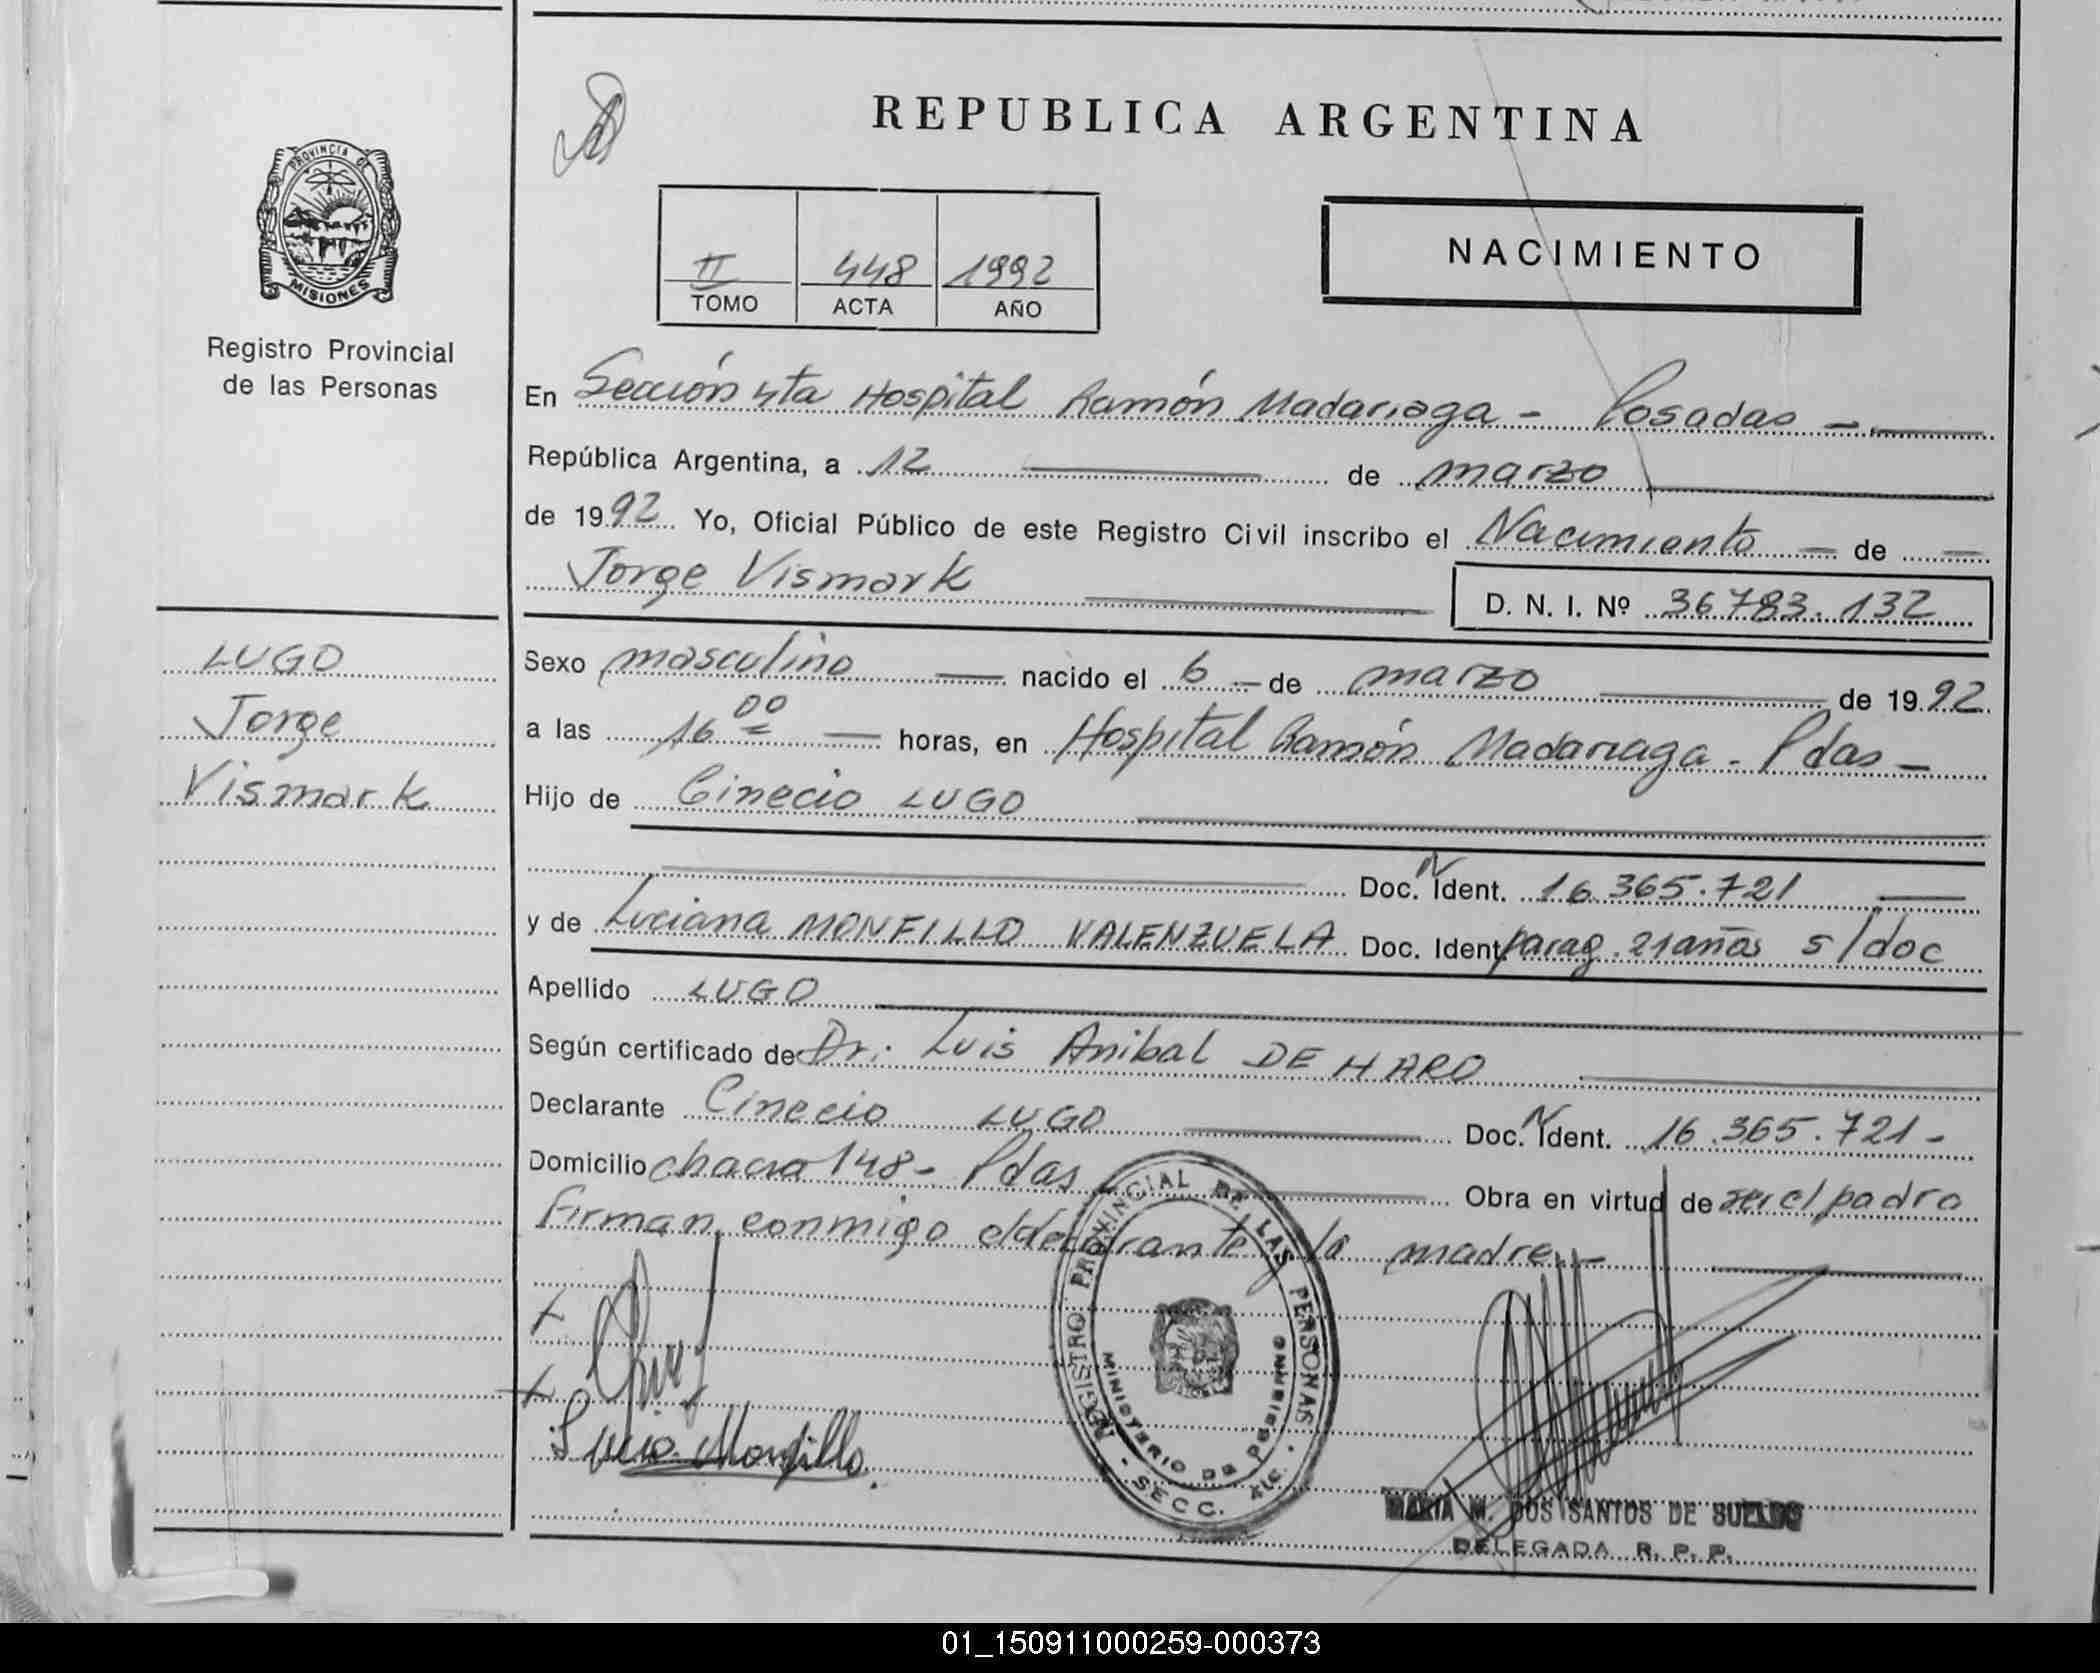 REPUBLICA ARGENTINA
PROVINCIA DE
MISIONES
Registro Provincial
de las Personas
II 448 1992
TOMO ACTA AÑO
NACIMIENTO
En Sección 4ta Hospital Ramón Madariaga - Posadas -
República Argentina, a 12 de marzo
de 1992 Yo, Oficial Público de este Registro Civil inscribo el Nacimiento de
Jorge Vismark
D. N. I. Nº 36.783.132
LUGO
Jorge
Vismark
Sexo masculino nacido el 6 de marzo de 1992
a las 16 00 horas, en Hospital Ramón Madariaga - Pdas -
Hijo de Cinecio LUGO
Doc. N Ident. 16.365.721
y de Luciana MONFILLO VALENZUELA Doc. Ident parag. 21 años s/doc
Apellido LUGO
Según certificado de Dr. Luis Anibal DE HARO
Declarante Cinecio LUGO Doc. N Ident. 16.365.721-
Domicilio chacra 148- Pdas Obra en virtud de ser el padre
Firman conmigo el declarante y la madre.-
REGISTRO PROVINCIAL DE LAS PERSONAS
MINISTERIO DE GOBIERNO
SECC. 4ta.
Monfillo
MARIA M. DOS SANTOS DE SUELDO
DELEGADA R. P. P.
01_150911000259-000373